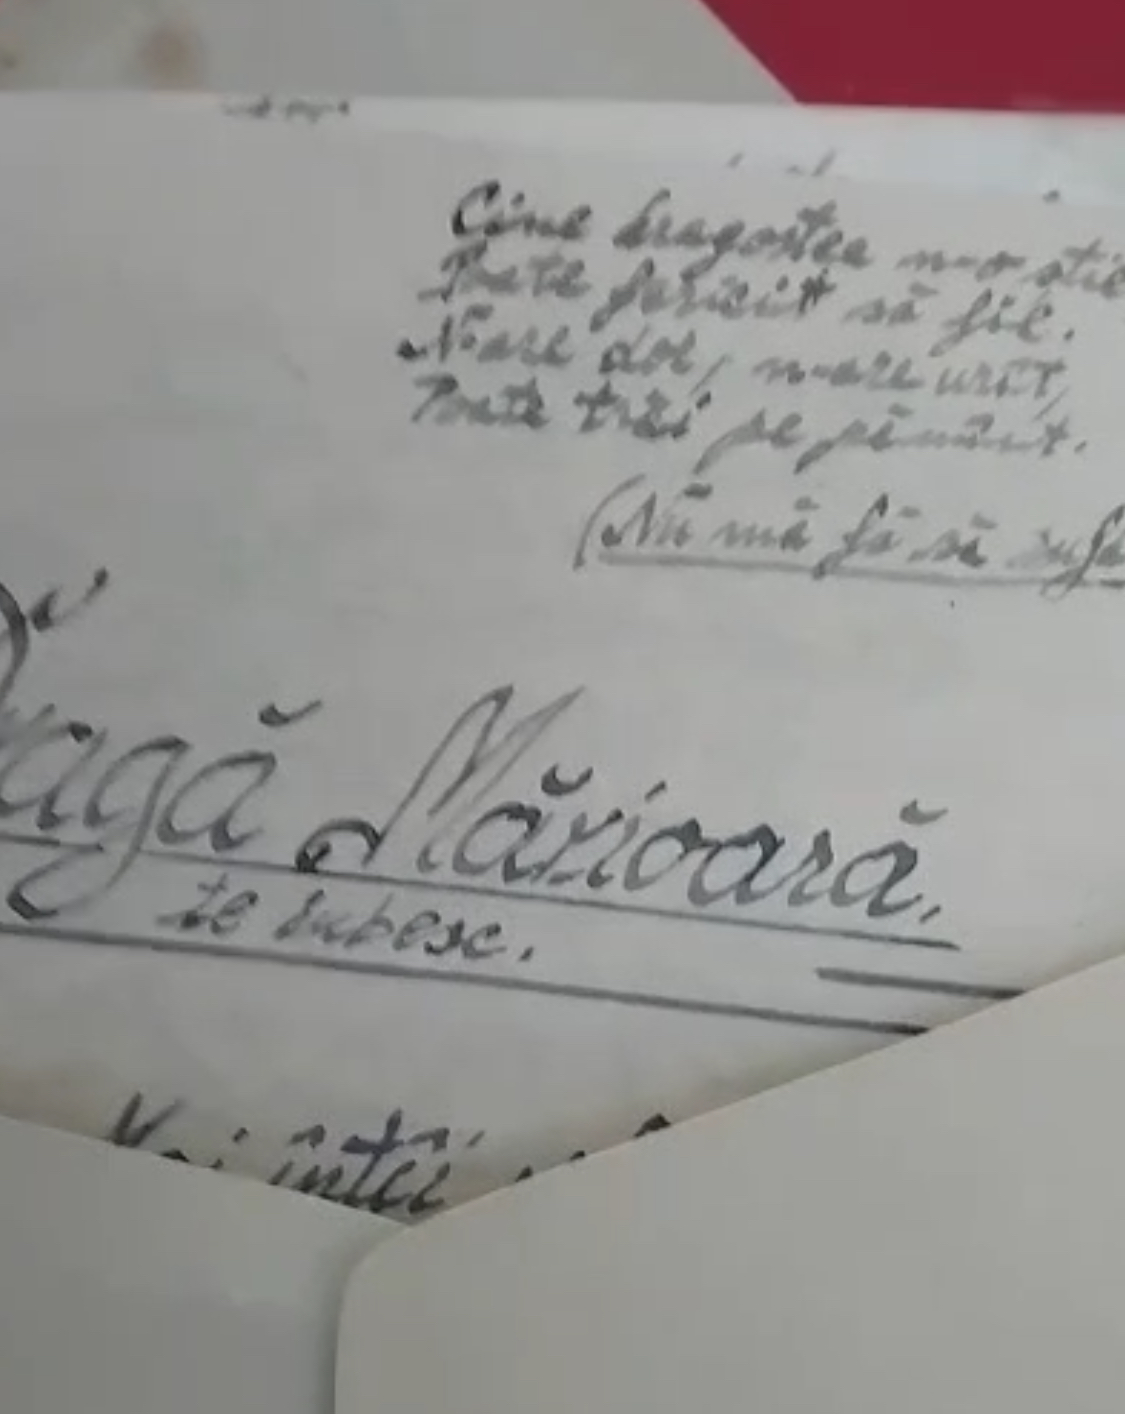 Cine dragostea n-o știe
Poate fericit să fie.
N-are dor, n-are urît,
Poate trăi pe pămînt.
(Nu mă fă să
Dragă Mărioară,
te iubesc.
Mai întîi